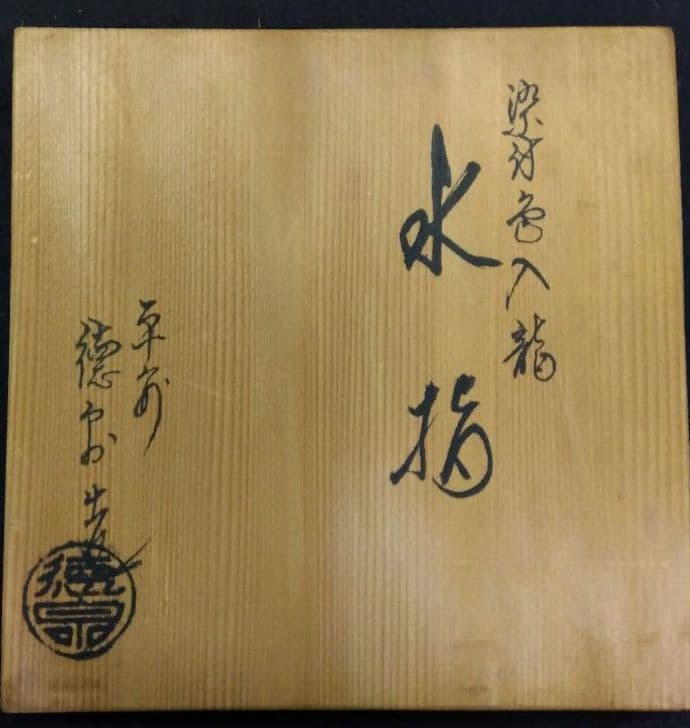 染付色入龍
水指
平安
徳泉造
徳泉